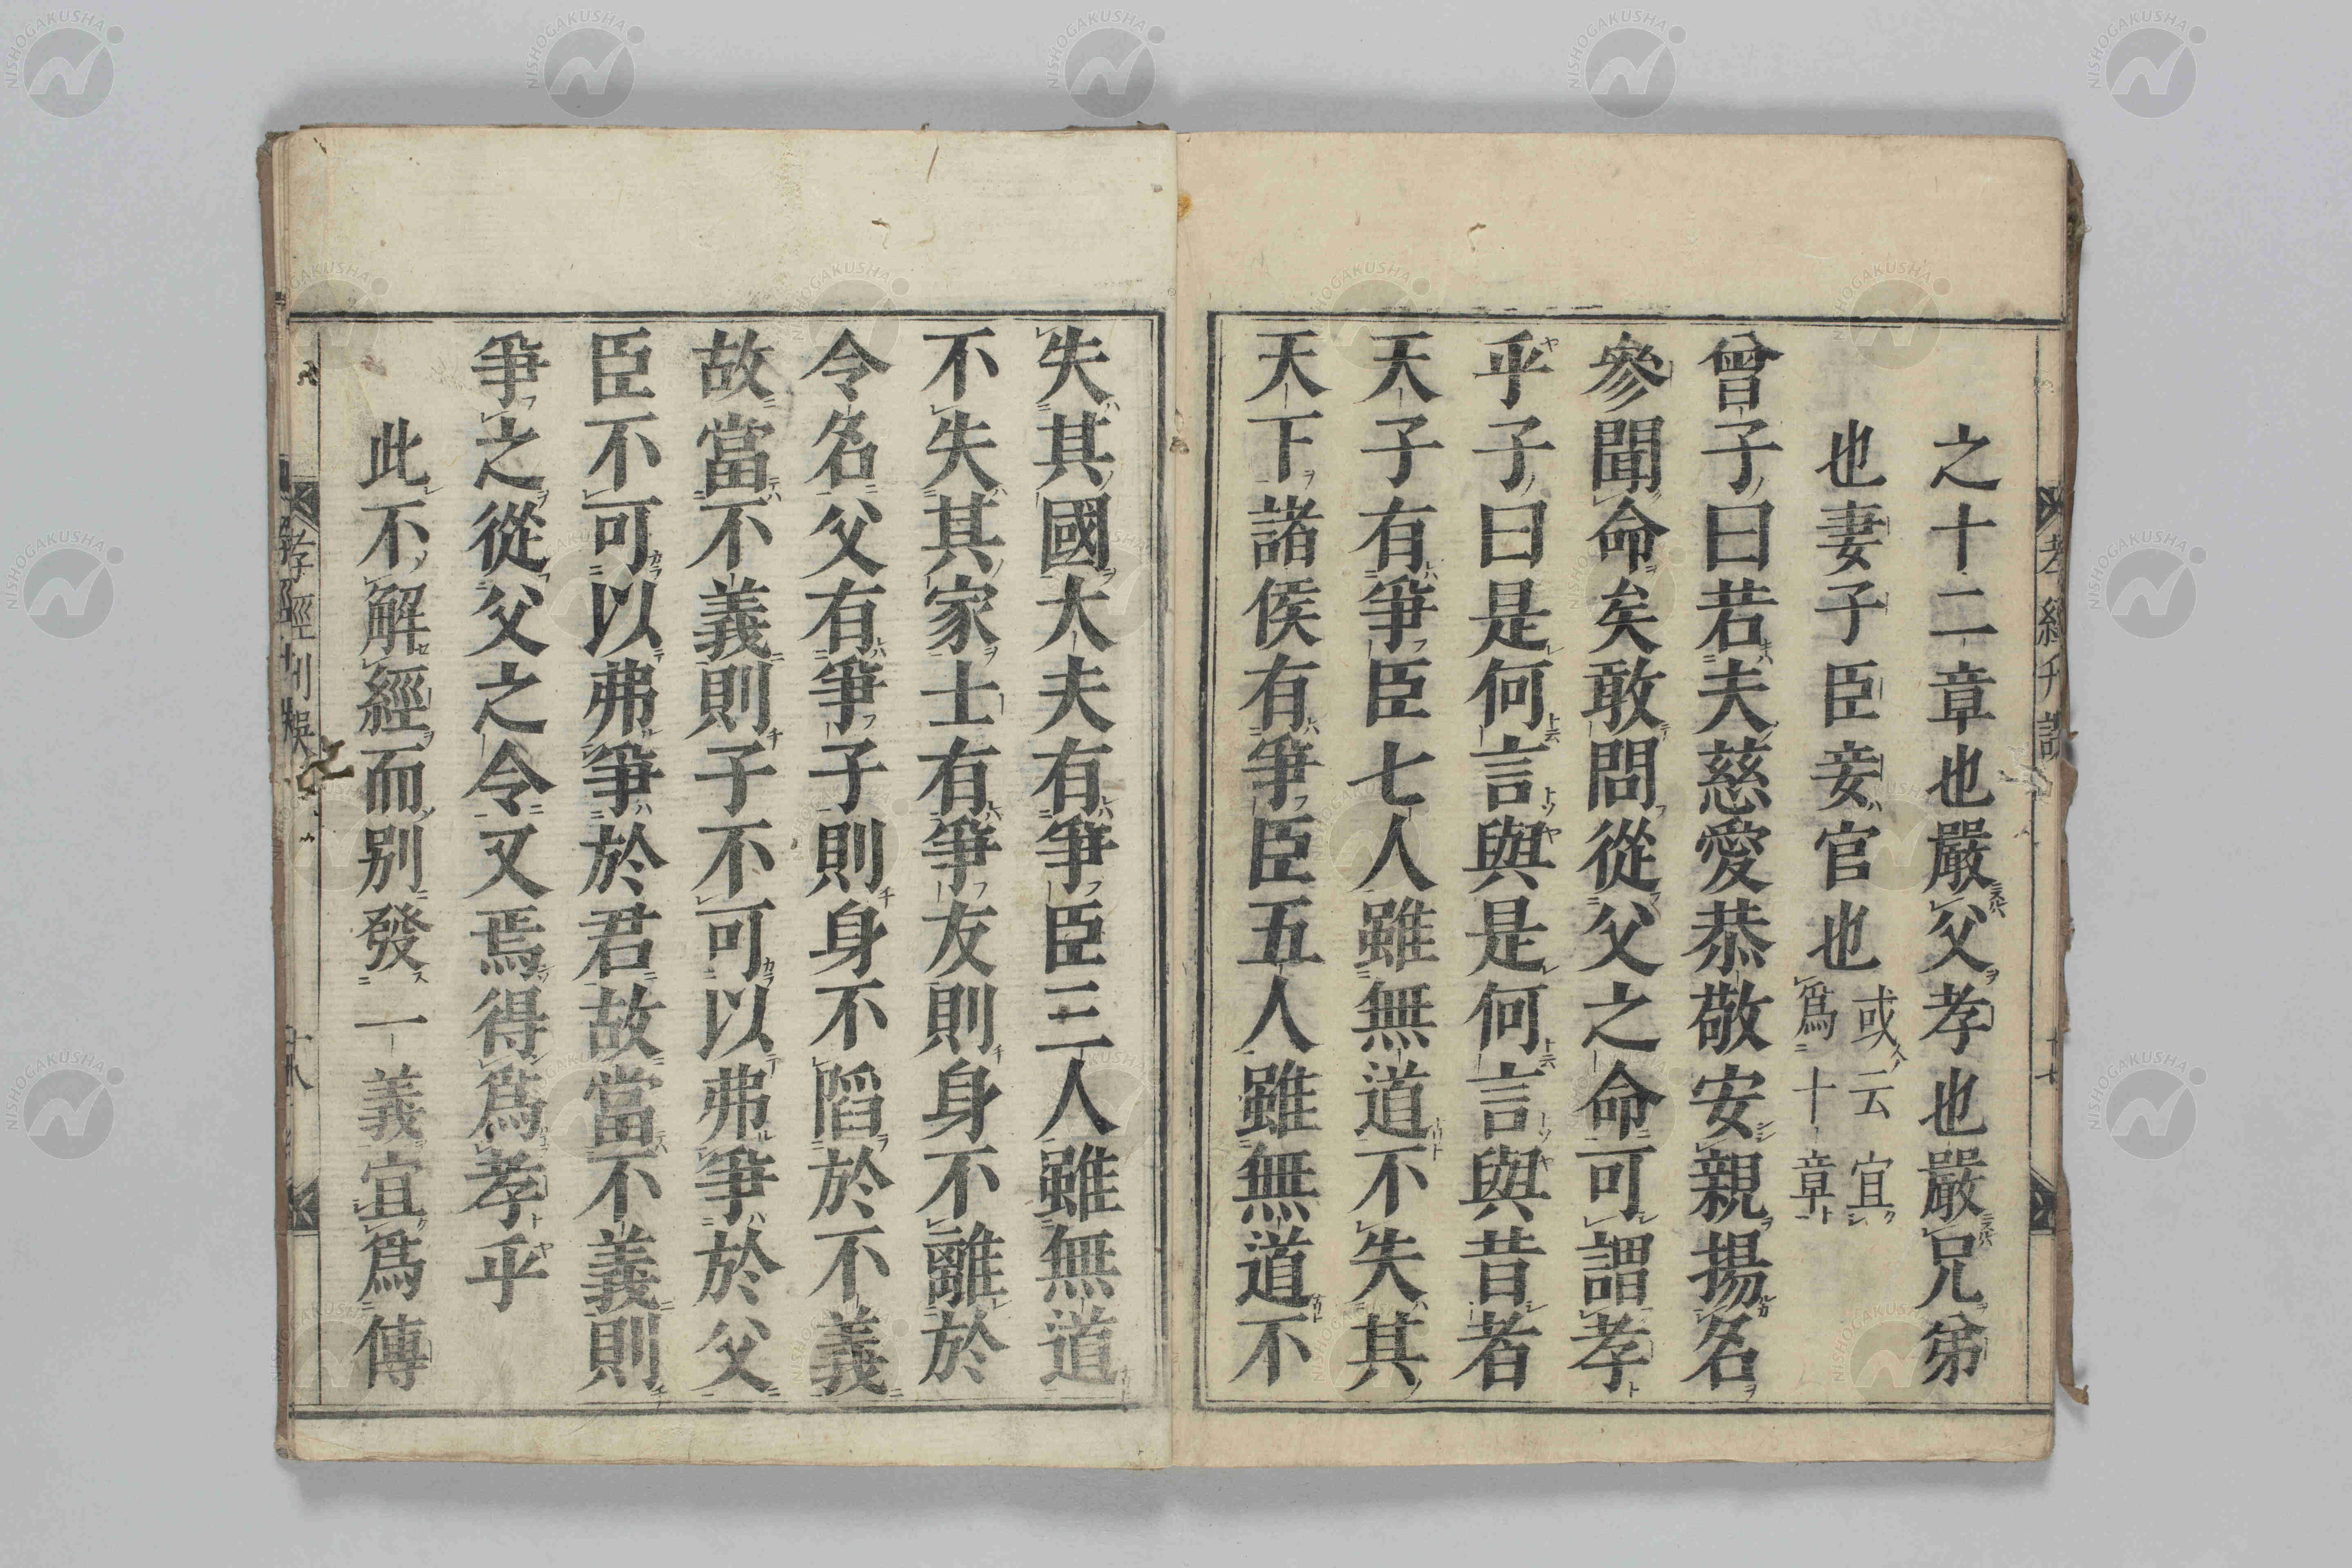 之十二章也嚴父孝也嚴兄弟
也妻子臣妾官也或云宜爲十章
曾子曰若夫慈愛恭敬安親揚名
參聞命矣敢問從父之命可謂孝
乎子曰是何言與是何言與昔者
天子有爭臣七人雖無道不失其
天下諸侯有爭臣五人雖無道不
失其國大夫有爭臣三人雖無道
不失其家士有爭友則身不離於
令名父有爭子則身不陷於不義
故當不義則子不可以弗爭於父
臣不可以弗爭於君故當不義則
爭之從父之令又焉得爲孝乎
此不解經而別發一義宜爲傳
孝經刊誤